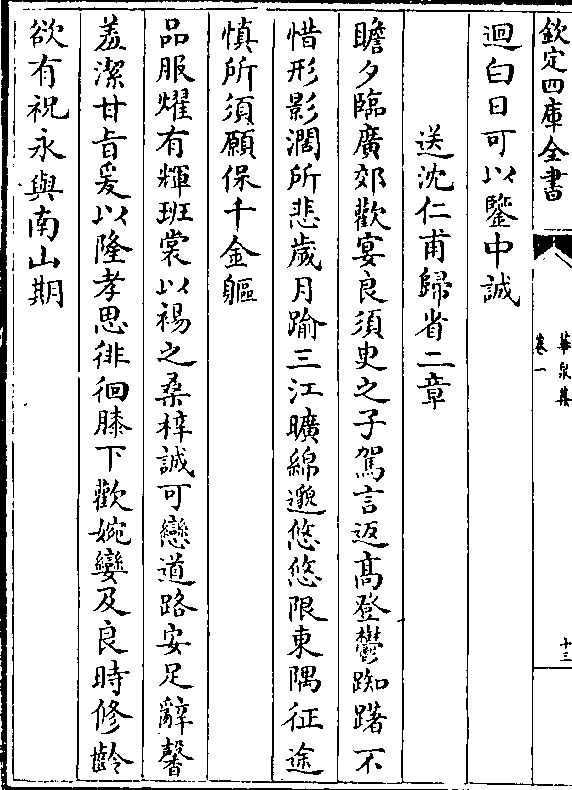 欽定四庫全書
華泉集
卷一
十三
迴白日可以鑒中誠
送沈仁甫歸省二章
瞻夕臨廣郊歡宴良須史之子駕言返髙登鬱踟躇不
惜形影濶所悲歲月踰三江曠綿邈悠悠限東隅征途
慎所須願保千金軀
品服耀有輝班裳以裼之桑梓誠可戀道路安足辭馨
羞潔甘旨爰以隆孝思徘徊膝下歡婉孌及良時修齡
欲有祝永與南山期